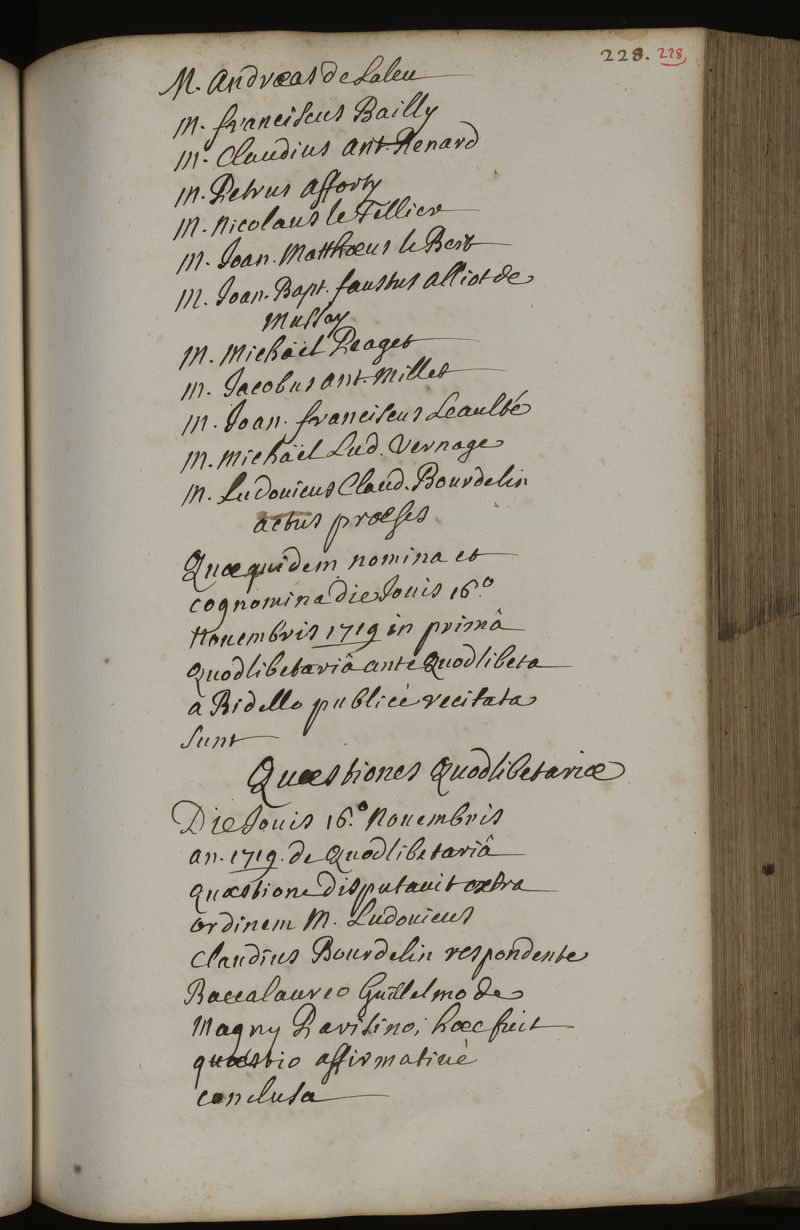 223. 228
M. Andræas de Laleu
M. franciscus Bailly
M. Claudius ant. Renard
M. Petrus afforty
M. Nicolaus le Tellier
M. Joan. Matthæus le Bert
M. Joan. Bapt. faustus alliot de
Mussay
M. Michäel Peaget
M. Jacobus ant. Millet
M. Joan. franciscus Leaulté
M. Michäel Lud. Vernage
M. Ludouicus Claud. Bourdelin
actus præses
Quæ quidem nomina et
cognomina die Jouis 16.º
Nouembris 1719 in primâ
Quodlibetariâ ante Quodlibeta
a Bidello publicè recitata
sunt
Quæstiones Quodlibetariæ
Die Jouis 16.º Nouembris
an. 1719. de Quodlibetariâ
quæstione disputauit extra
ordinem M. Ludouicus
Claudius Bourdelin respondente
Baccalaureo Guillelmo de
Magny Parisino; hæc fuit
quæstio affirmatiuè
conclusa